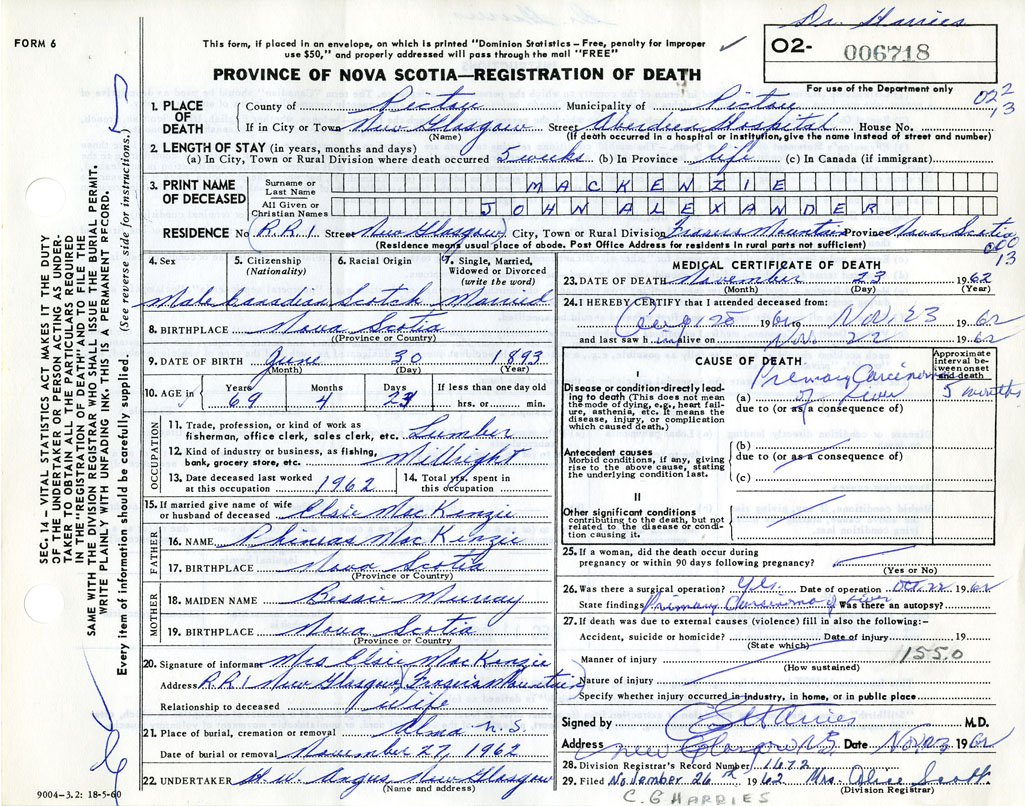 Dr. Harries
FORM 6
This form, if placed in an envelope, on which is printed "Dominion Statistics – Free, penalty for improper
use $50," and properly addressed will pass through the mail "FREE"
O2- 006718
PROVINCE OF NOVA SCOTIA—REGISTRATION OF DEATH
For use of the Department only
1. PLACE OF DEATH County of Pictou Municipality of Pictou
If in City or Town New Glasgow Street Aberdeen Hospital House No.
(Name) (If death occurred in a hospital or institution, give the name instead of street and number)
2. LENGTH OF STAY (in years, months and days)
(a) In City, Town or Rural Division where death occurred 5 weeks (b) In Province life (c) In Canada (if immigrant)
3. PRINT NAME OF DECEASED
Surname or Last Name MACKENZIE
All Given or Christian Names JOHN ALEXANDER
RESIDENCE No R.R.1 Street New Glasgow City, Town or Rural Division Frasers Mountain Province Nova Scotia
(Residence means usual place of abode. Post Office Address for residents in rural parts not sufficient)
4. Sex 5. Citizenship (Nationality) 6. Racial Origin 7. Single, Married, Widowed or Divorced (write the word)
Male Canadian Scotch Married
8. BIRTHPLACE Nova Scotia
(Province or Country)
9. DATE OF BIRTH June 30 1893
(Month) (Day) (Year)
10. AGE in Years Months Days If less than one day old
69 4 24 hrs. or min.
OCCUPATION
11. Trade, profession, or kind of work as fisherman, office clerk, sales clerk, etc. Lumber
12. Kind of industry or business, as fishing, bank, grocery store, etc. Millright
13. Date deceased last worked at this occupation 1962 14. Total yrs. spent in this occupation
15. If married give name of wife or husband of deceased Elsie MacKenzie
FATHER
16. NAME Phinias MacKenzie
17. BIRTHPLACE Nova Scotia
(Province or Country)
MOTHER
18. MAIDEN NAME Bessie Murray
19. BIRTHPLACE Nova Scotia
(Province or Country)
20. Signature of informant Mrs Elsie MacKenzie
Address R.R.1 New Glasgow Frasers Mountain
Relationship to deceased Wife
21. Place of burial, cremation or removal Alma N.S.
Date of burial or removal November 27, 1962
22. UNDERTAKER H.W. Angus New Glasgow
(Name and address)
9004-3.2: 18-5-60
MEDICAL CERTIFICATE OF DEATH
23. DATE OF DEATH November 23 1962
(Month) (Day) (Year)
24. I HEREBY CERTIFY that I attended deceased from:
1962 to Nov. 23 1962
and last saw him alive on Nov. 22 1962
CAUSE OF DEATH
Approximate interval between onset and death
I
Disease or condition directly leading to death (This does not mean the mode of dying, e.g., heart failure, asthenia, etc. It means the disease, injury, or complication which caused death.)
(a) Primary Carcinoma of liver 5 months
due to (or as a consequence of)
Antecedent causes
Morbid conditions, if any, giving rise to the above cause, stating the underlying condition last.
(b)
due to (or as a consequence of)
(c)
II
Other significant conditions
contributing to the death, but not related to the disease or condition causing it.
25. If a woman, did the death occur during pregnancy or within 90 days following pregnancy?
(Yes or No)
26. Was there a surgical operation? Yes. Date of operation Oct. 22 1962
State findings Primary Carsinoma of liver Was there an autopsy?
27. If death was due to external causes (violence) fill in also the following:-
Accident, suicide or homicide? Date of injury 19
(State which)
155.0
Manner of injury
(How sustained)
Nature of injury
Specify whether injury occurred in industry, in home, or in public place
Signed by C G Harries M.D.
Address New Glasgow N.S. Date Nov 23 1962
28. Division Registrar's Record Number 1672
29. Filed November 26th 1962 Mrs. Alice Scott
(Division Registrar)
C. G HARRIES
SEC. 14 – VITAL STATISTICS ACT MAKES IT THE DUTY
OF THE UNDERTAKER OR PERSON ACTING AS UNDER-
TAKER TO OBTAIN ALL THE PARTICULARS REQUIRED
IN THE "REGISTRATION OF DEATH" AND TO FILE THE
SAME WITH THE DIVISION REGISTRAR WHO SHALL ISSUE THE BURIAL PERMIT.
WRITE PLAINLY WITH UNFADING INK. THIS IS A PERMANENT RECORD.
Every item of information should be carefully supplied. (See reverse side for instructions.)